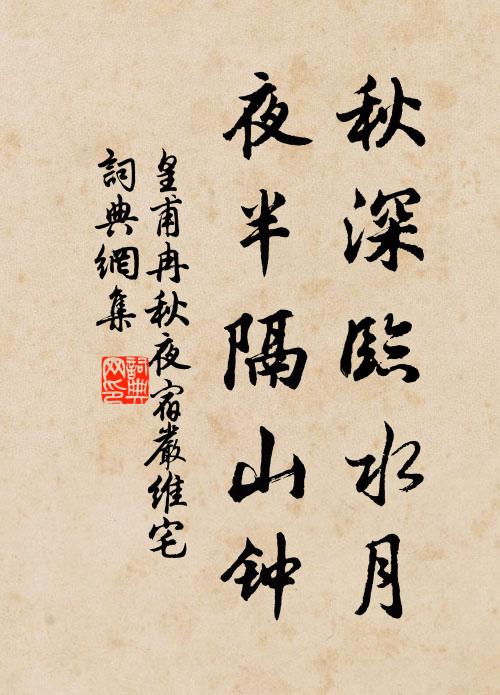 秋深臨水月
夜半隔山钟
皇甫冉秋夜宿嚴維宅
詞典網集
詞典
网印